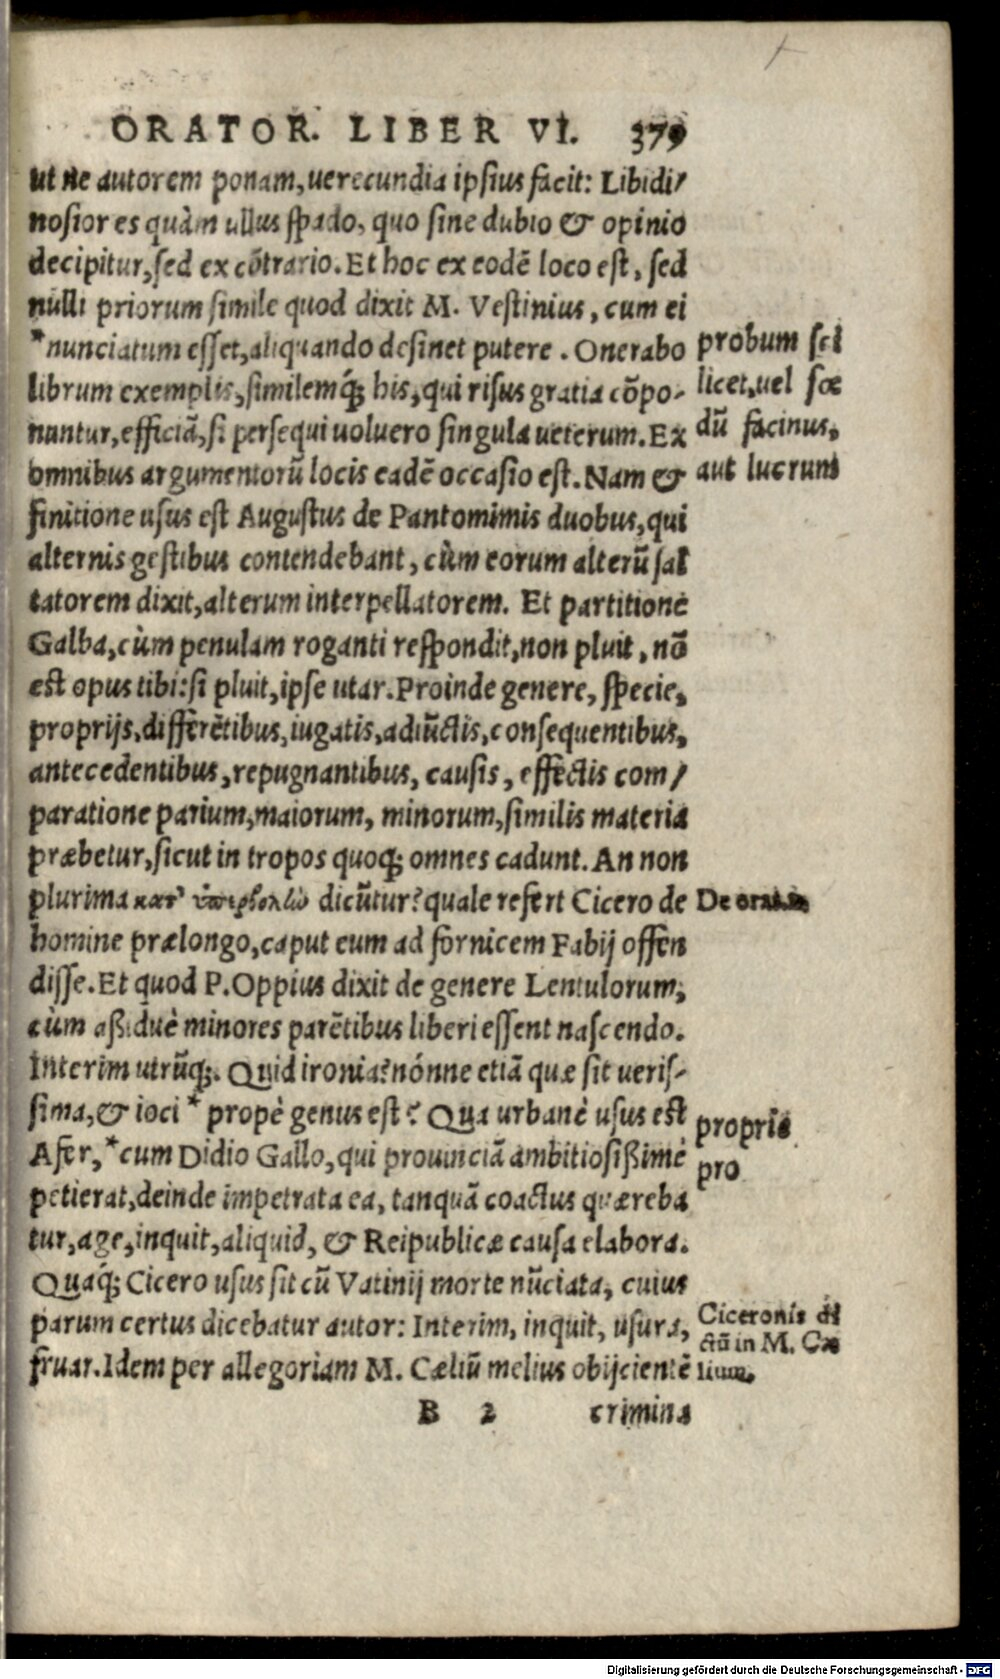 ORATOR. LIBER VI. 379
ut ne autorem ponam, uerecundia ipsius facit: Libidi/
nosior es quàm ullus spado, quo sine dubio & opinio
decipitur, sed ex cōtrario. Et hoc ex eodē loco est, sed
nulli priorum simile quod dixit M. Vestinius, cum ei
*nunciatum esset, aliquando desinet putere. Onerabo
librum exemplis, similemq́; his, qui risus gratia cōpo-
nuntur, efficiā, si persequi uoluero singula ueterum. Ex
omnibus argumentorū locis eadē occasio est. Nam &
finitione usus est Augustus de Pantomimis duobus, qui
alternis gestibus contendebant, cùm eorum alterū sal
tatorem dixit, alterum interpellatorem. Et partitione
Galba, cùm penulam roganti respondit, non pluit, nō
est opus tibi: si pluit, ipse utar. Proinde genere, specie,
proprijs, differētibus, iugatis, adiūctis, consequentibus,
antecedentibus, repugnantibus, causis, effectis com/
paratione parium, maiorum, minorum, similis materia
præbetur, sicut in tropos quoq; omnes cadunt. An non
plurima κατ' ὑπερβολὴν dicūtur? quale refert Cicero de
homine prælongo, caput eum ad fornicem Fabij offen
disse. Et quod P. Oppius dixit de genere Lentulorum,
cùm aßiduè minores parētibus liberi essent nascendo.
Interim utrūq;. Quid ironia? nónne etiā quæ sit ueris-
sima, & ioci * propè genus est? Qua urbanè usus est
Afer, *cum Didio Gallo, qui prouinciā ambitiosißimè
petierat, deinde impetrata ea, tanquā coactus quæreba
tur, age, inquit, aliquid, & Reipublicæ causa elabora.
Quaq́; Cicero usus sit cū Vatinij morte nūciata, cuius
parum certus dicebatur autor: Interim, inquit, usura,
fruar. Idem per allegoriam M. Cæliū melius obijcientē
B 2 crimina
probum sci
licet, uel fœ
dū facinus,
aut lucrum
De orat.
propriè
pro
Ciceronis di
ctū in M. Cæ
lium.
Digitalisierung gefördert durch die Deutsche Forschungsgemeinschaft - DFG